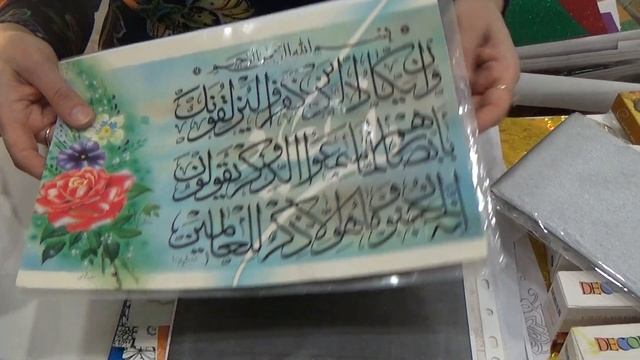 بسم الله الرحمن الرحيم
وان يكاد الذين كفروا ليزلقونك
بابصارهم لما سمعوا الذكر ويقولون
انه لمجنون وما هو الا ذكر للعالمين
DECO
DECO